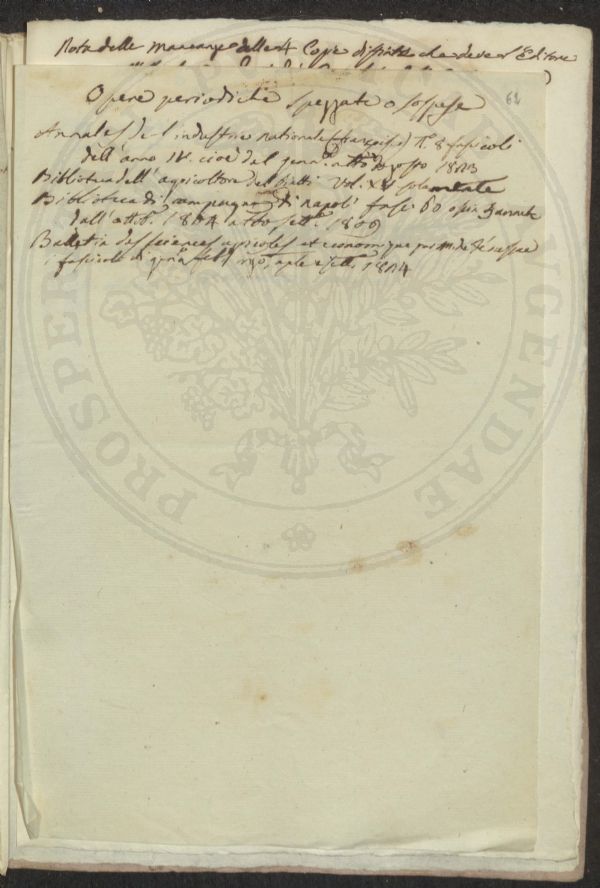 Nota delle mancanze delle 4 Copie distinte che deve l'Editore
62
Opere periodiche spezzate o sospese
Annales de l'industrie nationale (françoise) N. 8 fascicoli
dell'anno IV. cioè del genn. a tutto Agosto 1823
Biblioteca dell'agricoltore del Gatti Vol. XV solamente
Biblioteca di campagna di napoli fasc. 60 o sia 5 annate
dall'ottb. 1804 a tto sett. 1809
Bulletin des sciences agricoles et economique par M. de Ferussac
fascicoli di genn. febb. aple e sett. 1824
PROSPERITATI PUBLICAE AUGENDAE